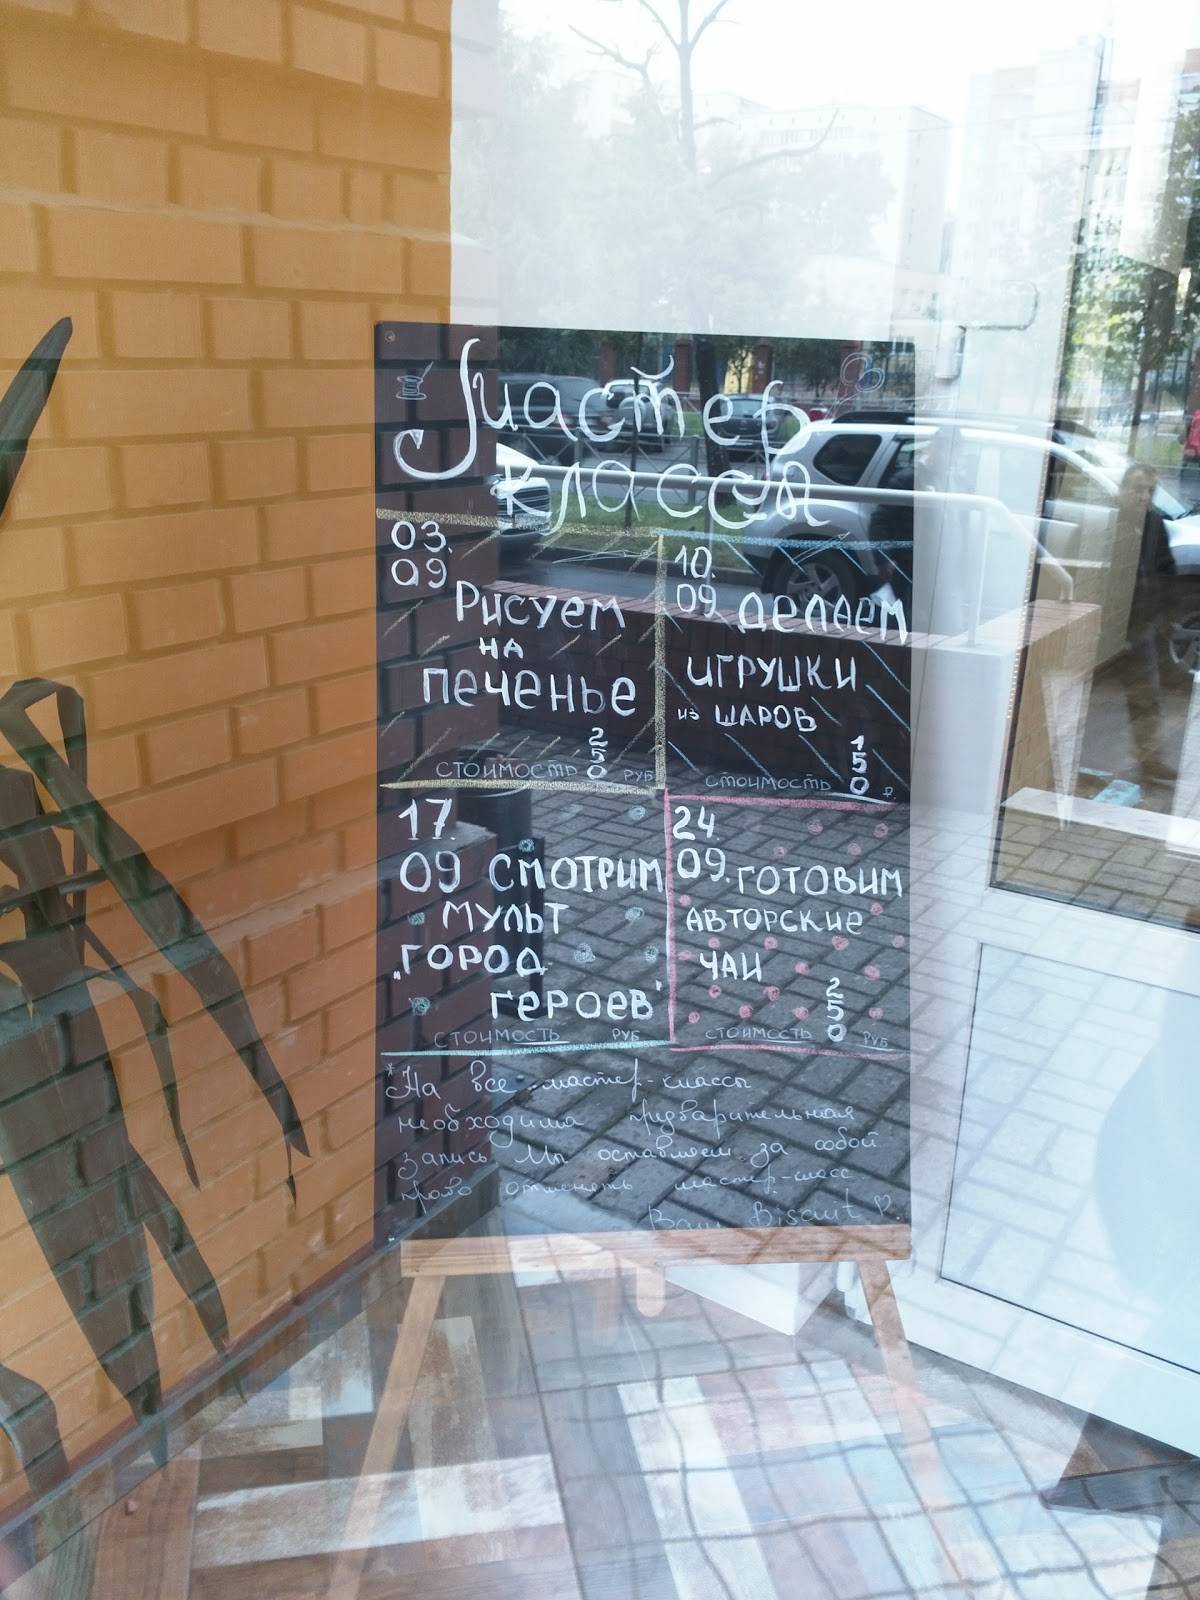 Мастер
классы
03.
09
Рисуем
на
печенье
стоимость 250 руб
10.
09 делаем
игрушки
из шаров
стоимость 150 р.
17.
09 смотрим
мульт
„город
героев"
стоимость руб
24.
09. готовим
авторские
чаи
стоимость 250 руб
*На все мастер-классы
необходима предварительная
запись Мы оставляем за собой
право отменять мастер-класс.
Ваш Biscuit